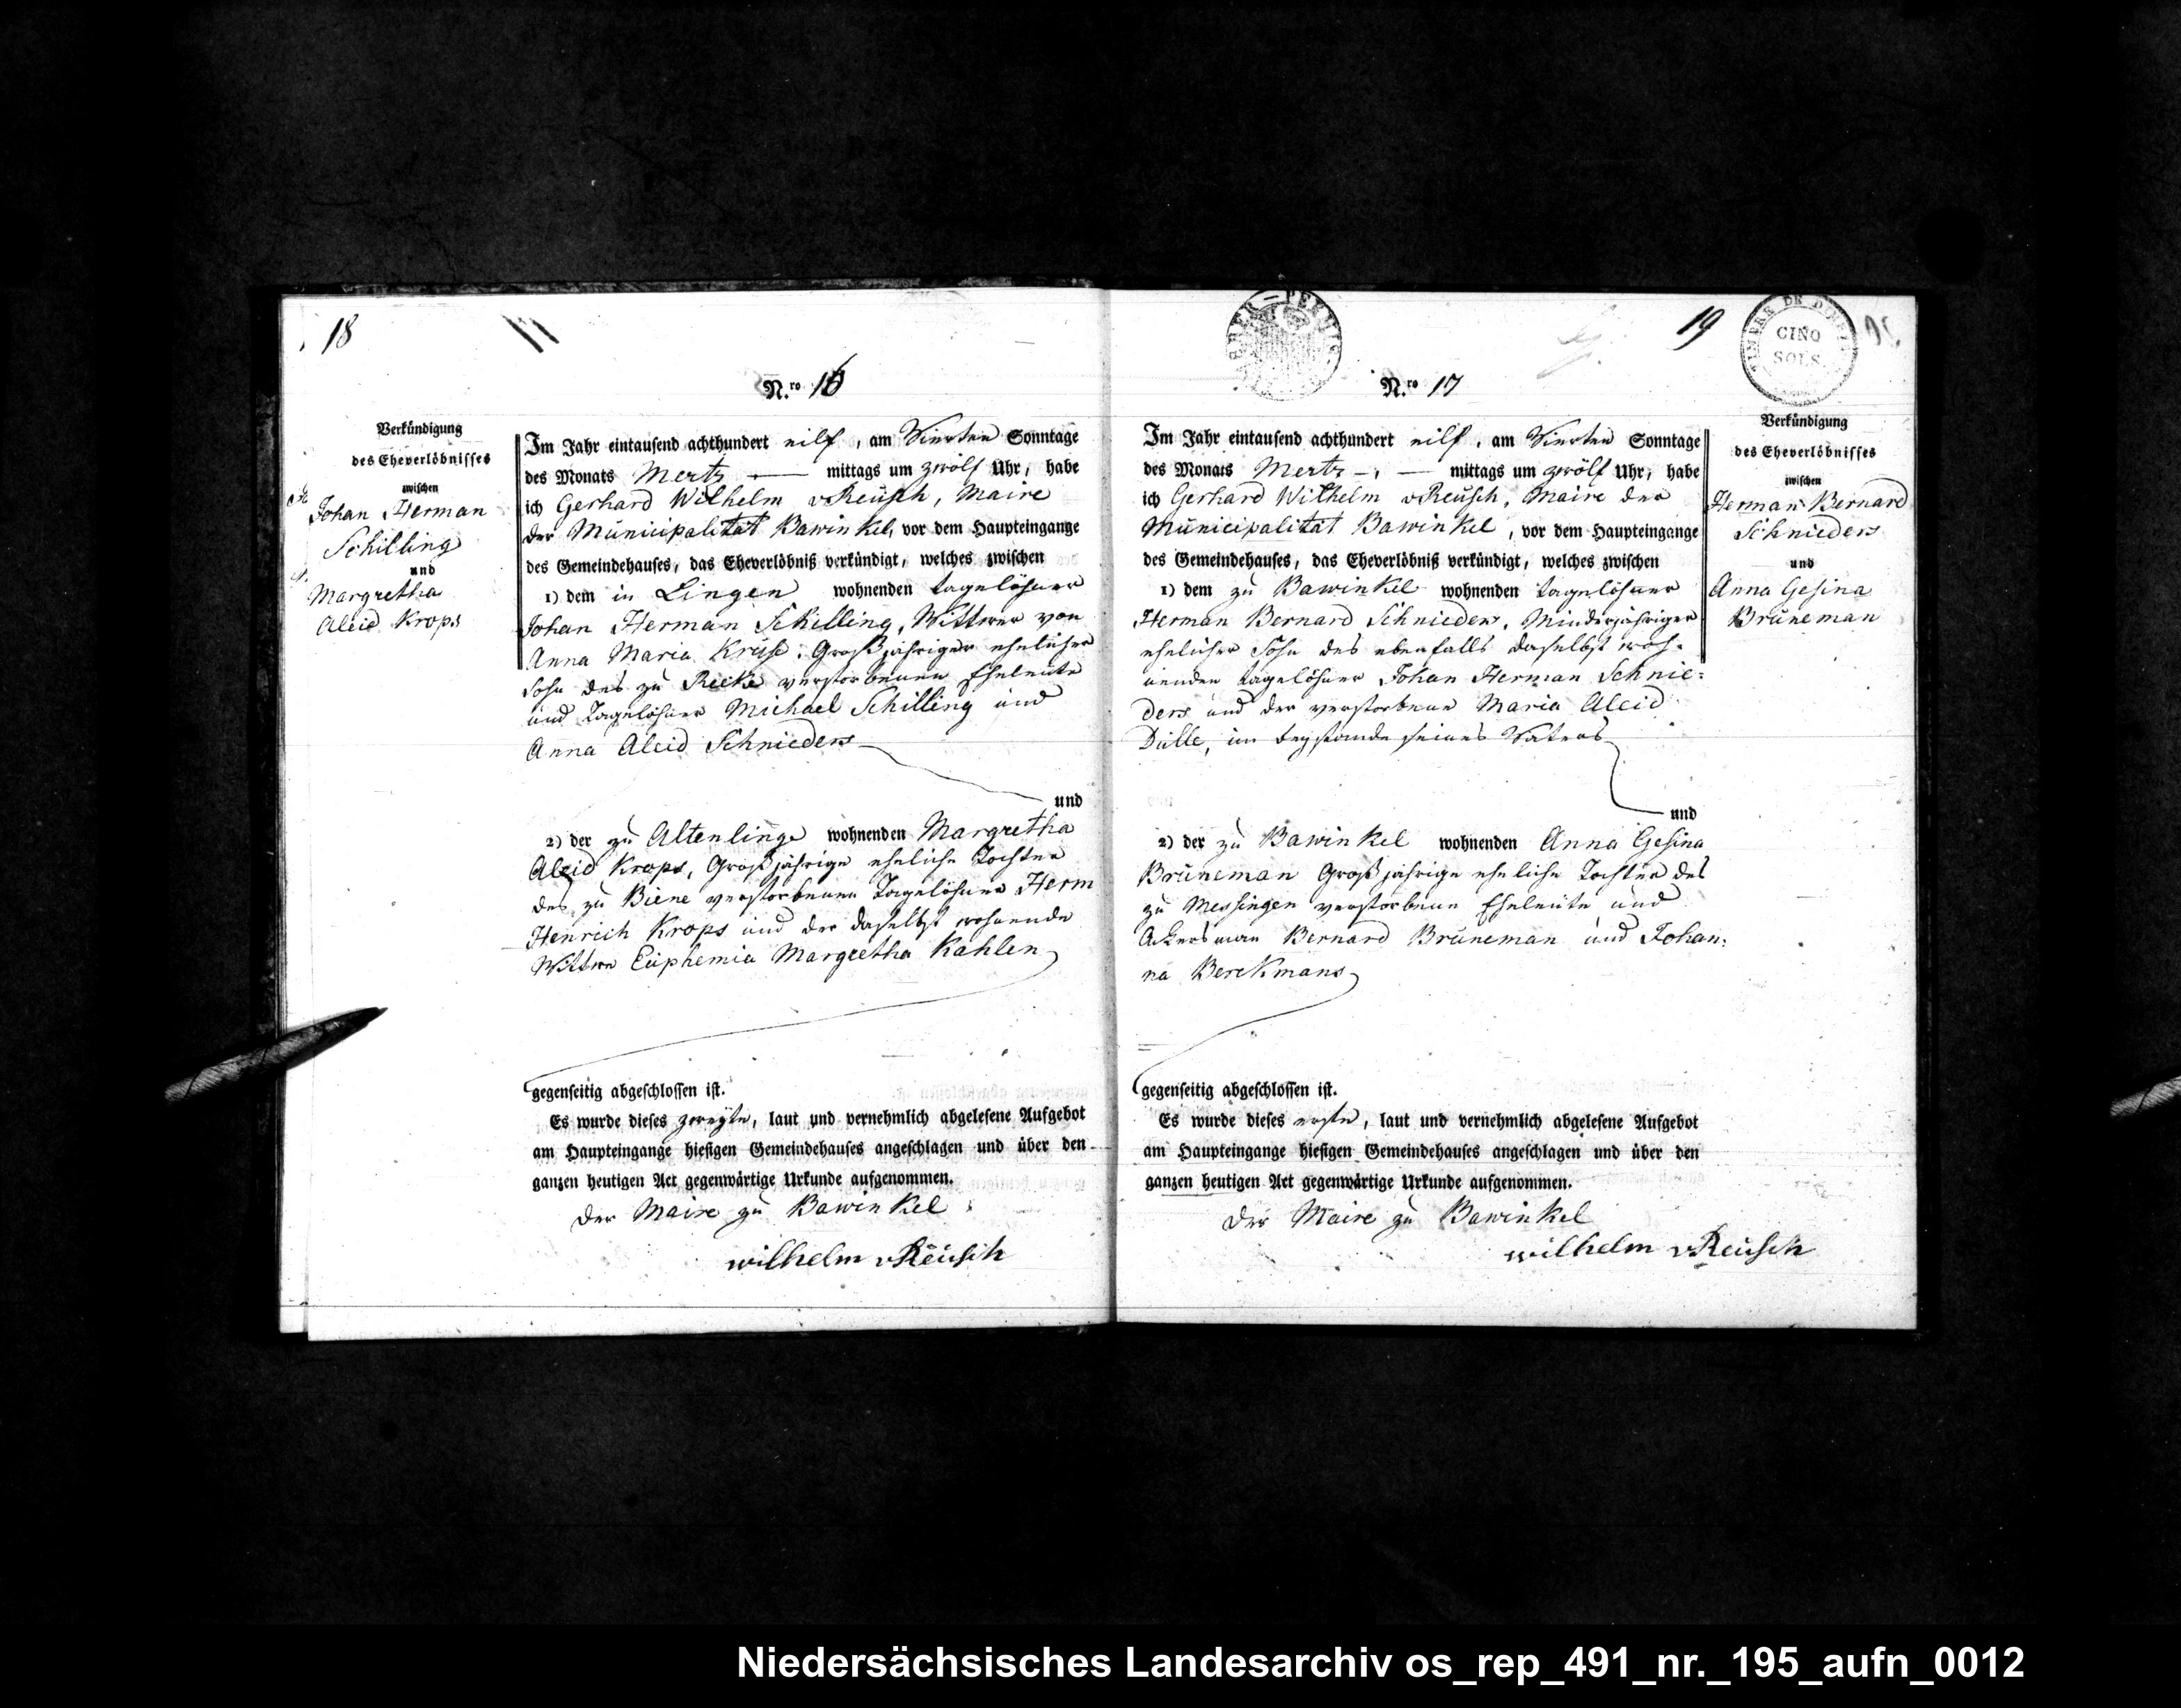 18
N.ro 16
Verkündigung
des Eheverlöbnisses
zwischen
Johan Herman
Schilling
und
Margretha
Aleid Krops
Im Jahr eintausend achthundert eilf, am Vierten Sonntage
des Monats Mertz — mittags um zwölf Uhr, habe
ich Gerhard Wilhelm vReusch, Maire
der Municipalität Bawinkel, vor dem Haupteingange
des Gemeindehauses, das Eheverlöbniß verkündigt, welches zwischen
1) dem in Lingen wohnenden tagelöhner
Johan Herman Schilling, Wittwer von
Anna Maria Kruse. Großjähriger ehelicher
Sohn des zu Recke verstorbenen Eheleute
und Tagelöhner Michael Schilling und
Anna Aleid Schnieders
und
2) der zu Altenlinge wohnenden Margretha
Aleid Krops, Großjährige eheliche Tochter
des zu Biene verstorbenen Tagelöhner Herm
Henrich Krops und der daselbst wohnende
Wittwe Euphemia Margretha Kahlen
gegenseitig abgeschlossen ist.
Es wurde dieses zweyte, laut und vernehmlich abgelesene Aufgebot
am Haupteingange hiesigen Gemeindehauses angeschlagen und über den
ganzen heutigen Act gegenwärtige Urkunde aufgenommen.
Der Maire zu Bawinkel
wilhelm vReusch
19
TIMBRE DE
CINQ
SOLS.
N.ro 17
Verkündigung
des Eheverlöbnisses
zwischen
Herman Bernard
Schnieders
und
Anna Gesina
Brüneman
Im Jahr eintausend achthundert eilf, am Vierten Sonntage
des Monats Mertz — mittags um zwölf Uhr, habe
ich Gerhard Wilhelm vReusch, Maire der
Municipalität Bawinkel, vor dem Haupteingange
des Gemeindehauses, das Eheverlöbniß verkündigt, welches zwischen
1) dem zu Bawinkel wohnenden tagelöhner
Herman Bernard Schnieders, Minderjähriger
ehelicher Sohn des ebenfalls daselbst woh-
nenden tagelöhner Johan Herman Schnie-
ders und der verstorbene Maria Aleid
Dülle, im beystande seines Vaters
und
2) der zu Bawinkel wohnenden Anna Gesina
Brüneman Großjährige eheliche Tochter des
zu Messingen verstorbene Eheleute und
Ackersman Bernard Brüneman und Johan-
na Berckmans
gegenseitig abgeschlossen ist.
Es wurde dieses erste, laut und vernehmlich abgelesene Aufgebot
am Haupteingange hiesigen Gemeindehauses angeschlagen und über den
ganzen heutigen Act gegenwärtige Urkunde aufgenommen.
Der Maire zu Bawinkel
wilhelm vReusch
Niedersächsisches Landesarchiv os_rep_491_nr._195_aufn_0012